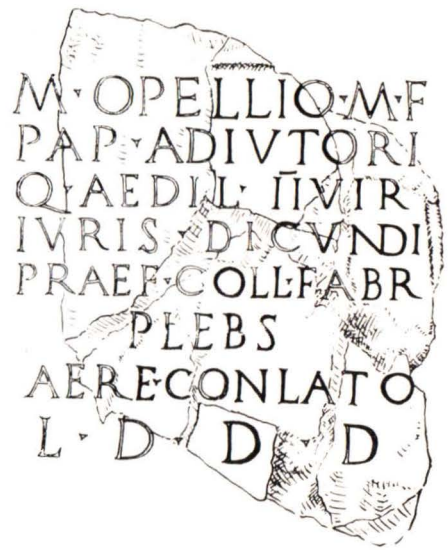 M · OPELLIO · M · F
PAP · ADIVTORI
Q · AEDIL · I̅I̅VIR
IVRIS · DICVNDI
PRAEF · COLL · FABR
PLEBS
AERE · CONLATO
L · D · D · D